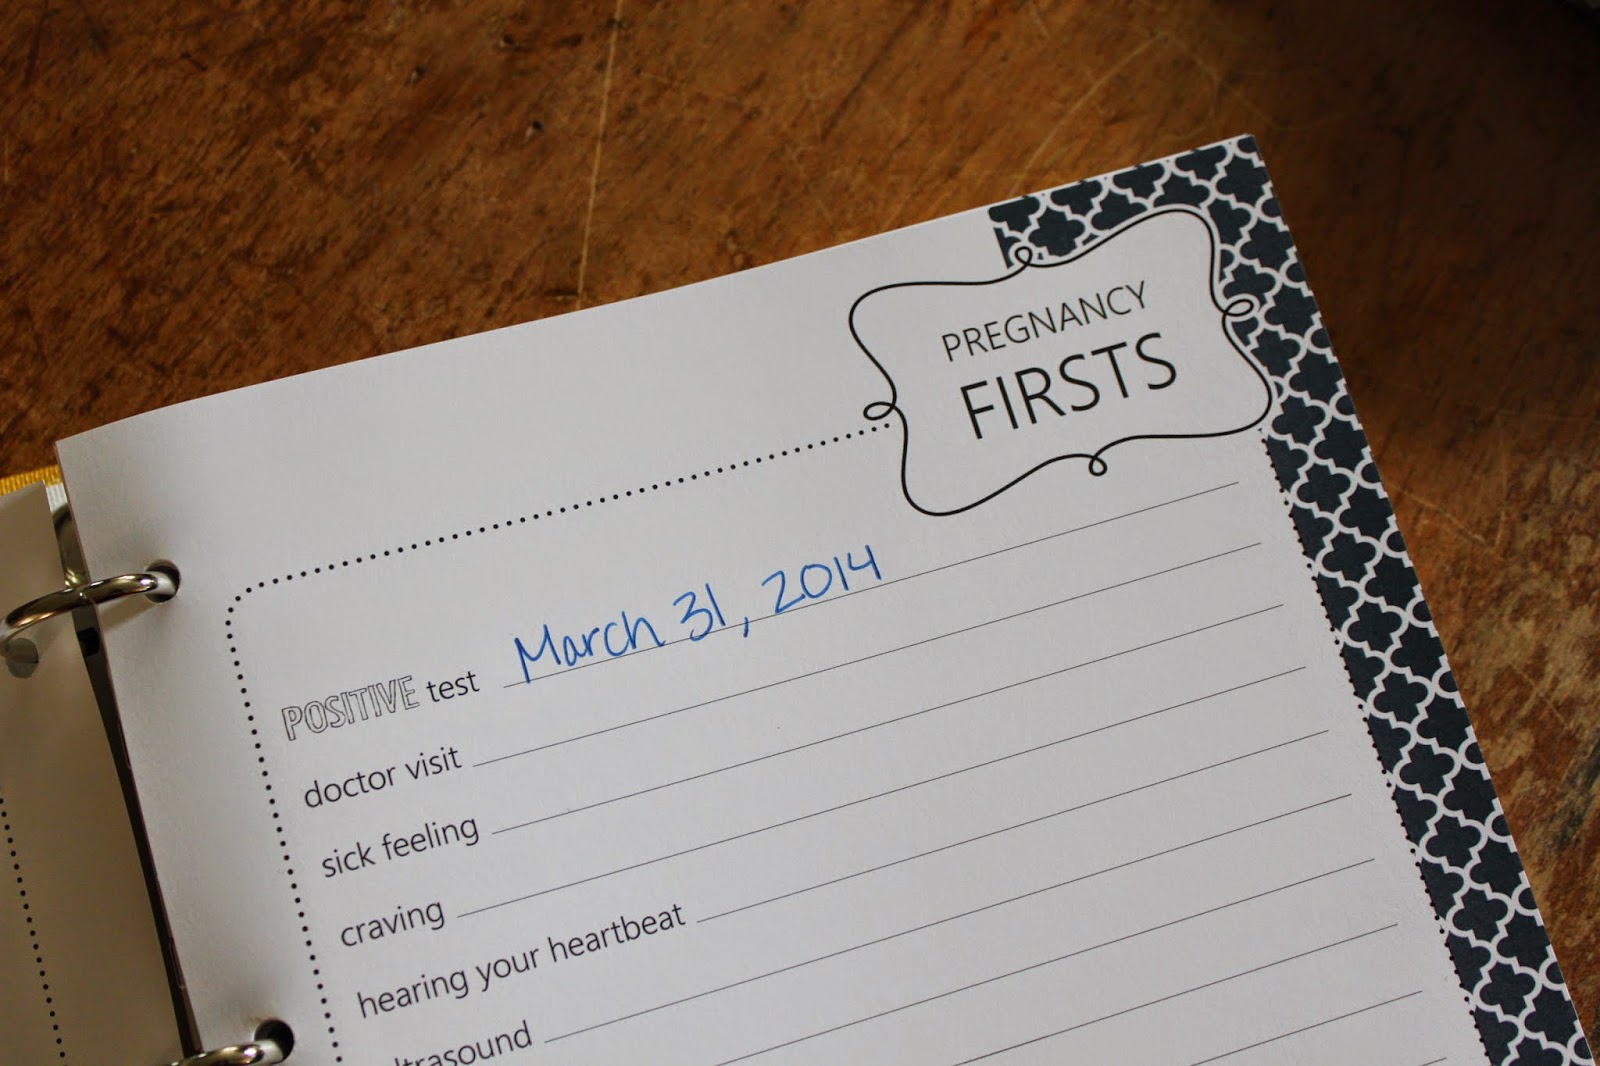 PREGNANCY
FIRSTS
POSITIVE test March 31, 2014
doctor visit
sick feeling
craving
hearing your heartbeat
ltrasound